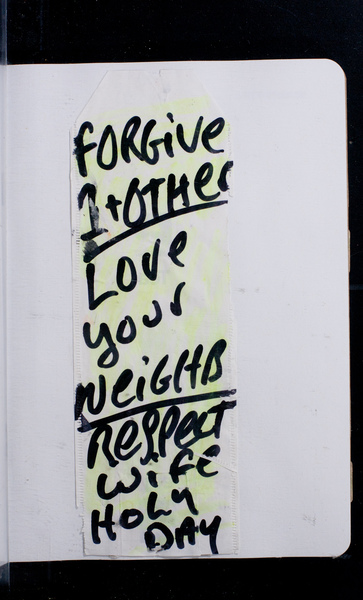 FORGIVE
1+OTHER
LOVE
YOUR
NEIGHB
RESPECT
WIFE
HOLY
DAY